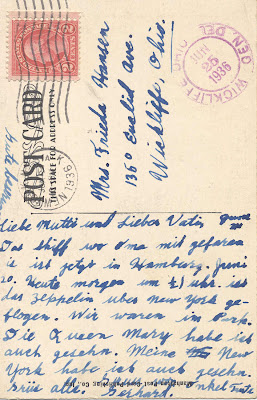 POST CARD
THIS SPACE FOR ADDRESS ONLY
Mrs. Frieda Hansen
1360 Euclid Ave.
Wickliffe, Ohio.
WICKLIFFE
OHIO
GEN. DEL
JUN
25
1936
1936
Liebe Mutti und Lieber Vati
Das schiff wo Oma mit gefaren
ie ist jetzt in Hamburg. Juni
20. Heute morgen um uhr. ist
das Zeppelin über New York ge-
flogen. Wir waren im Park.
Die Queen Mary habe ich
auch gesehn. Meine New
York habe ich auch gesehn.
Grüs alle. Onkel Tante
Gerhard.